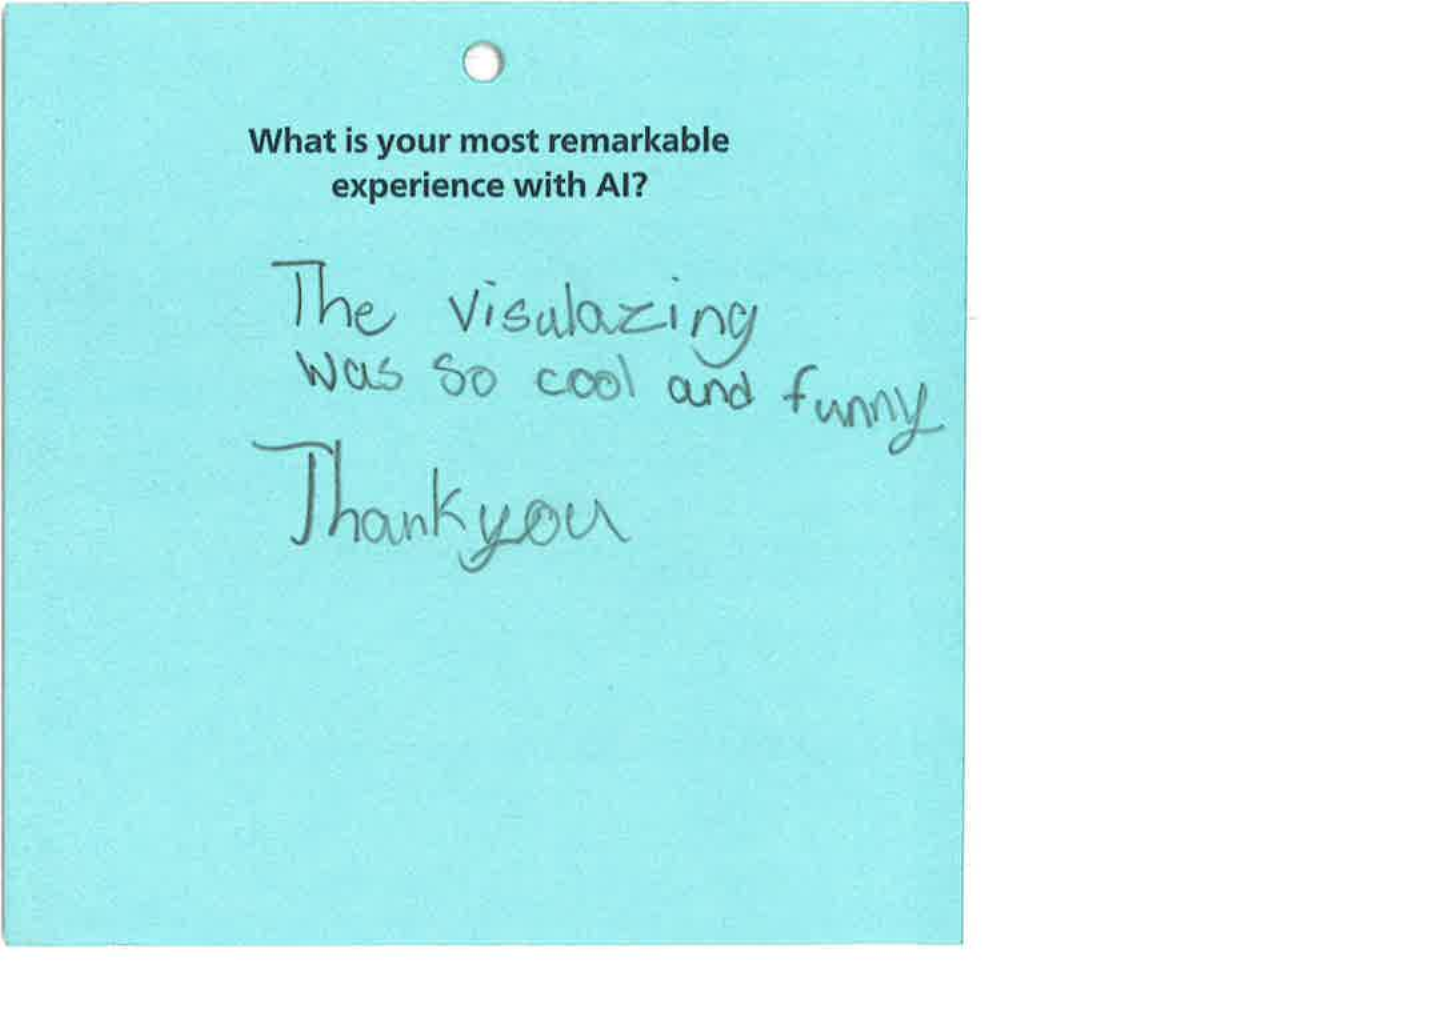 What is your most remarkable
experience with AI?
The visulazing
was so cool and funny
Thankyou